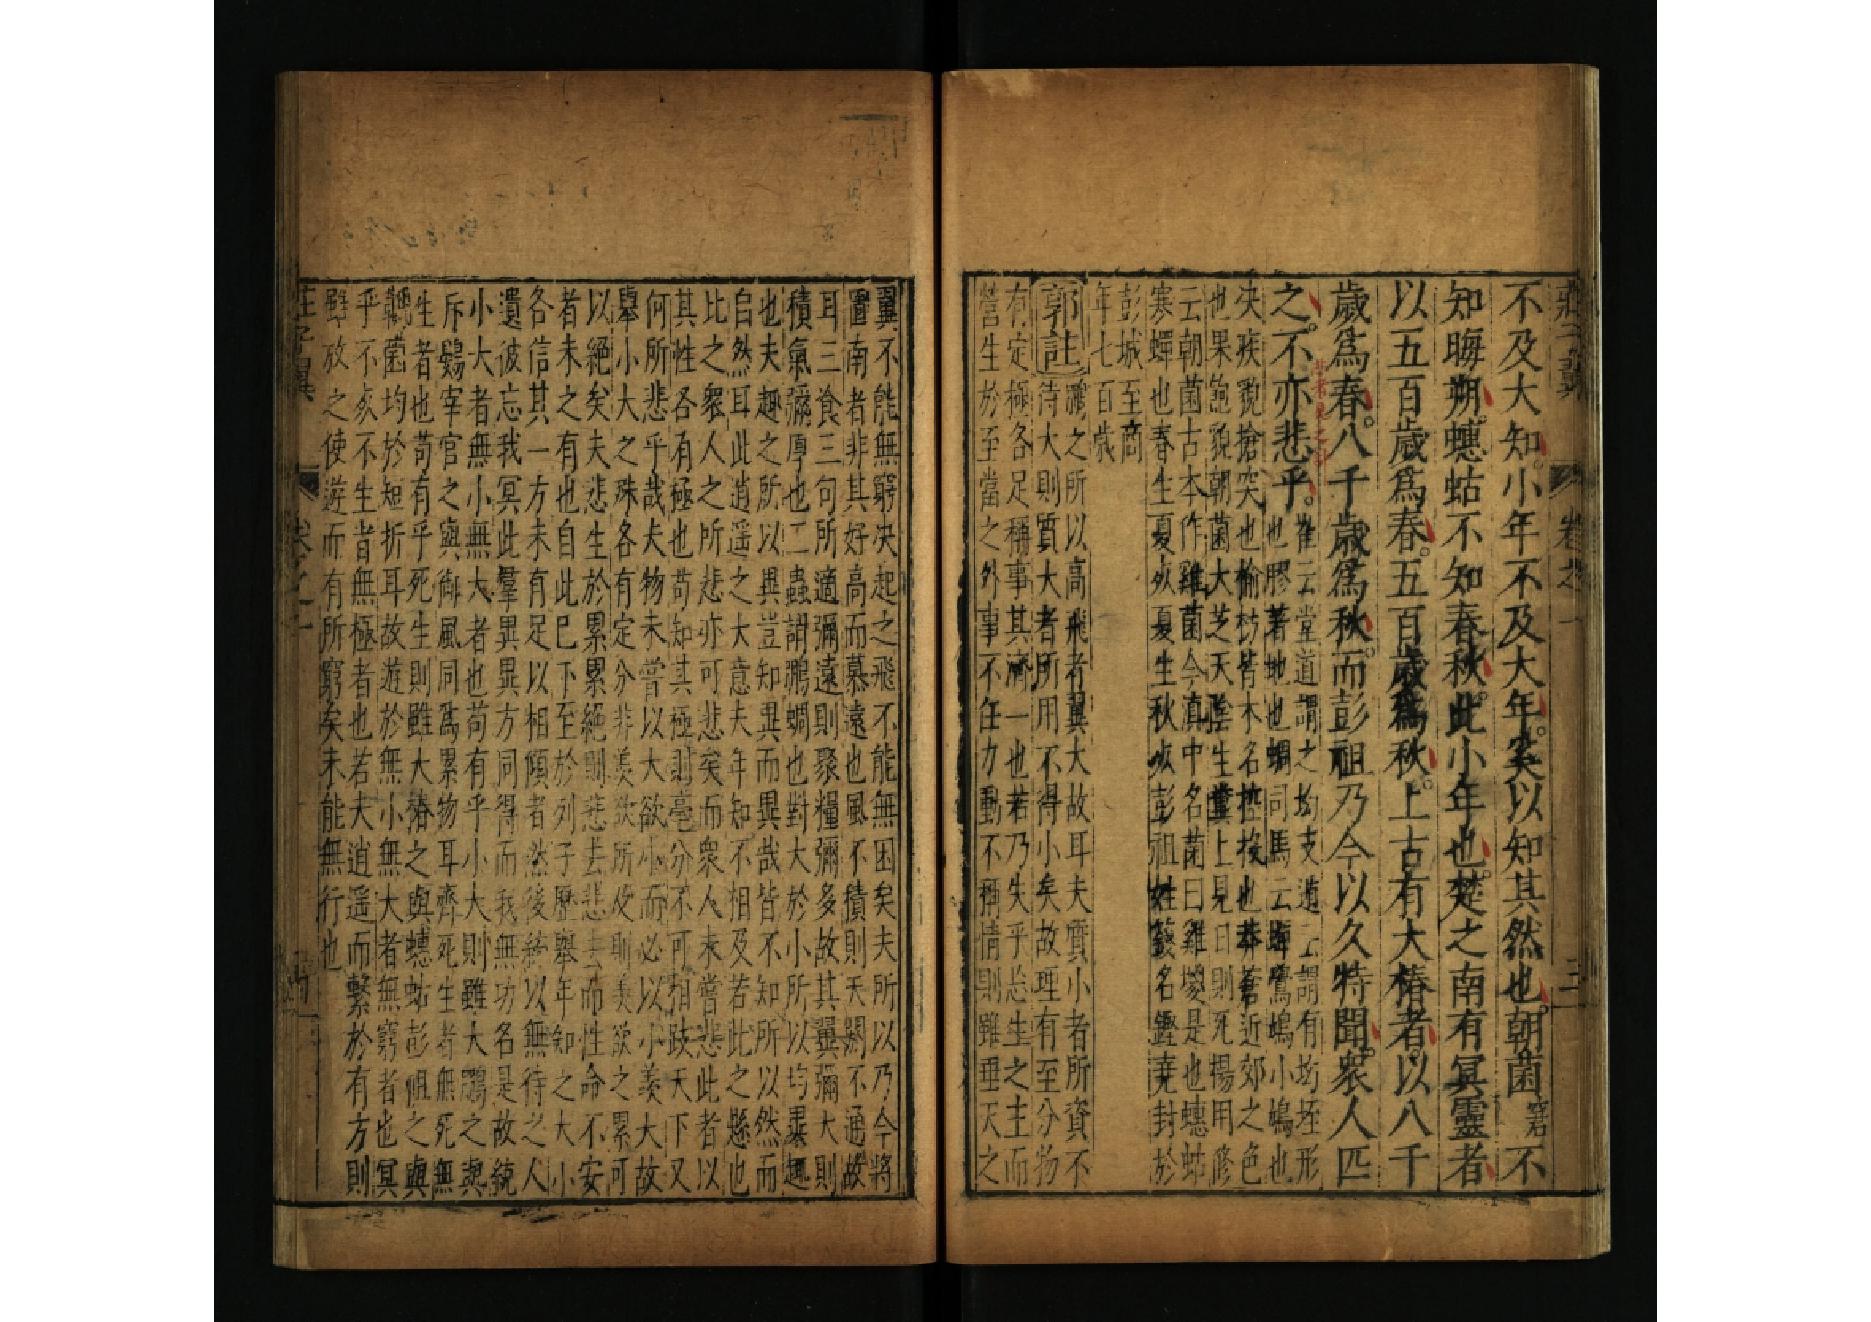 莊子翼 卷之一 三
不及大知。小年不及大年。奚以知其然也。朝菌窘不
知晦朔。蟪蛄不知春秋。此小年也。楚之南有冥靈者
以五百歲爲春。五百歲爲秋。上古有大椿者。以八千
歲爲春。八千歲爲秋。而彭祖乃今以久特聞。衆人匹
之。不亦悲乎。崔云堂道謂之坳支遁云謂有坳垤形
也膠著地也蜩司馬云蟬鷽鳩小鳩也
决疾貌搶突也榆枋皆木名控投也莽蒼近郊之色
也果飽貌朝菌大芝天陰生糞上見日則死楊用修
云朝菌古本作雞菌今滇中名菌曰雞㙡是也蟪蛄
寒蟬也春生夏死夏生秋死彭祖姓籛名鏗堯封於
彭城至商
年七百歲
郭註 鵬之所以高飛者翼大故耳夫質小者所資不
待大則質大者所用不得小矣故理有至分物
有定極各足稱事其濟一也若乃失乎忘生之主而
營生於至當之外事不任力動不稱情則雖垂天之
翼不能無窮决起之飛不能無困矣夫所以乃今將
圖南者非其好高而慕遠也風不積則夭閼不通故
耳三飡三句所適彌遠則聚糧彌多故其翼彌大則
積氣彌厚也二蟲謂鵬蜩也對大於小所以均異趣
也夫趣之所以異豈知異而異哉皆不知所以然而
自然耳此逍遥之大意夫年知不相及若此之懸也
比之衆人之所悲亦可悲矣而衆人未嘗悲此者以
其性各有極也苟知其極則毫分不可相跂天下又
何所悲乎哉夫物未嘗以大欲小而必以小羡大故
舉小大之殊各有定分非羡欲所及則羡欲之累可
以絕矣夫悲生於累累絕則悲去悲去而性命不安
者未之有也自此巳下至於列子歷舉年知之大小
各信其一方未有足以相傾者然後統以無待之人
遺彼忘我冥此羣異異方同得而我無功名是故統
小大者無小無大者也苟有乎小大則雖大鵬之與
斥鷃宰官之與御風同爲累物耳齊死生者無死無
生者也苟有乎死生則雖大椿之與蟪蛄彭祖之與
朝菌均於短折耳故遊於無小無大者無窮者也冥
乎不死不生者無極者也若夫逍遥而繫於有方則
雖放之使遊而有所窮矣未能無行也
莊子翼 卷之一